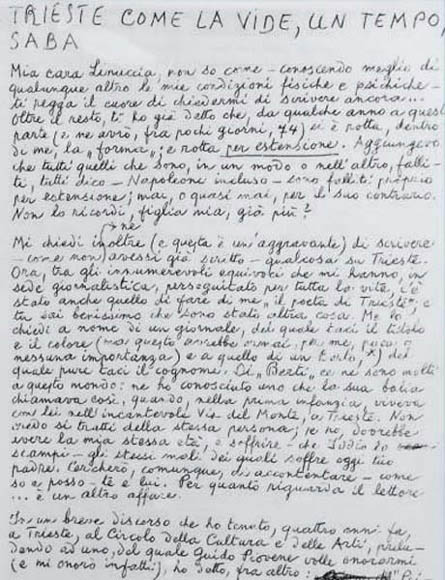 TRIESTE COME LA VIDE, UN TEMPO,
SABA
Mia cara Linuccia, non so come – conoscendo meglio di
qualunque altro le mie condizioni fisiche e psichiche –
ti regga il cuore di chiedermi di scrivere ancora...
Oltre il resto, ti ho già detto che, da qualche anno a questa
parte (e ne avrò, fra pochi giorni, 74) si è rotta, dentro
di me, la „forma"; e rotta per estensione. Aggiungevo
che tutti quelli che sono, in un modo o nell'altro, falli-
ti, tutti dico – Napoleone incluso – sono falliti proprio
per estensione; mai, o quasi mai, per il suo contrario.
Non lo ricordi, figlia mia, già più?
ne
Mi chiedi inoltre (e questa è un'aggravante) di scrivere
– come non avessi già scritto – qualcosa su Trieste.
Ora, tra gli innumerevoli equivoci che mi hanno, in
sede giornalistica, perseguitato per tutta la vita, c'è
stato anche quello di fare di me „il poeta di Trieste"; e
tu sai benissimo che sono stato altra cosa. Me lo
chiedi a nome di un giornale, del quale taci il titolo
e il colore (ma questo avrebbe ormai, per me, poca o
nessuna importanza) e a quello di un
del
quale pure taci il cognome. Di „Berti" ce ne sono molti
a questo mondo: ne ho conosciuto uno che la sua balia
chiamava così, quando, nella prima infanzia, viveva
con lei nell'incantevole Via del Monte, a Trieste. Non
credo si tratti della stessa persona; se no, dovrebbe
avere la mia stessa età, e soffrire – che Iddio lo
scampi – gli stessi mali dei quali soffre oggi tuo
padre. Cercherò, comunque, di accontentare – come
so e posso – te e lui. Per quanto riguarda il lettore
... è un altro affare.
In un breve discorso che ho tenuto, quattro anni fa,
a Trieste, al Circolo della Cultura e delle Arti, prelu-
dendo ad uno, del quale Guido Piovene volle onorarmi
(e mi onorò infatti), ho detto, fra altro: